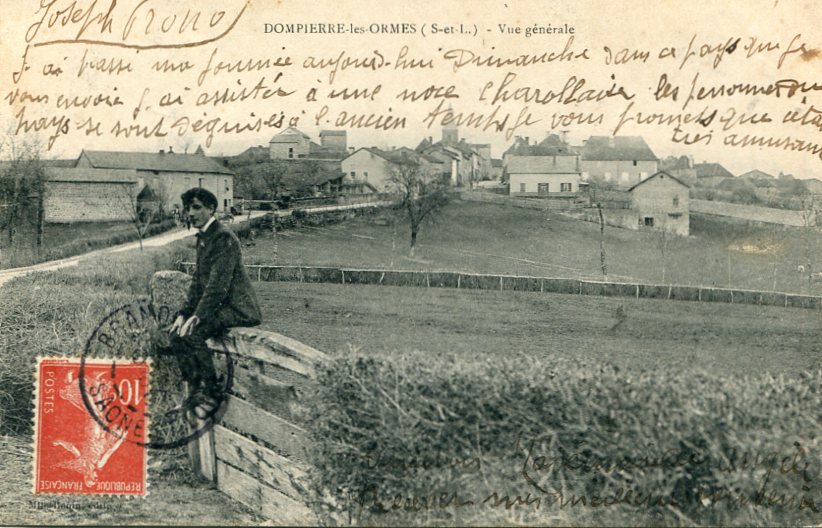 Joseph
DOMPIERRE-les-ORMES (S-et-L.) - Vue générale
J'ai passé ma journée aujourd-hui Dimanche dans ce pays que je
vous envoie j'ai assistée à une noce Charollaise les personnes du
pays se sont déguisés à l'ancien temps je vous promets que c'était
très amusant
POSTES
10
RÉPUBLIQUE FRANÇAISE
SAONE
Mademoiselle
Recevez mes meilleurs